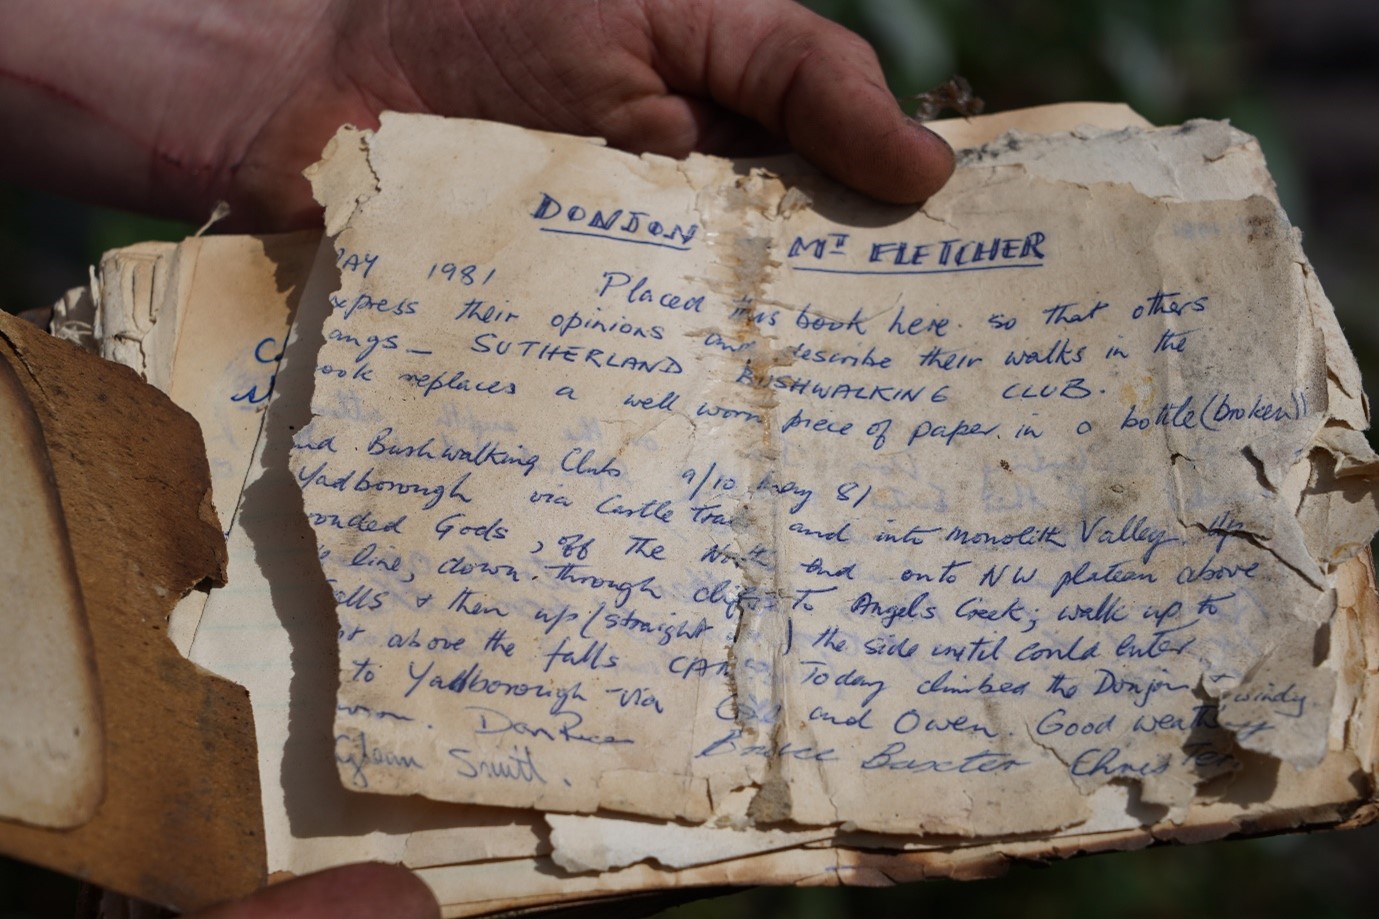 DONJON MT FLETCHER
AY 1981 Placed this book here. so that others
xpress their opinions and describe their walks in the
angs - SUTHERLAND BUSHWALKING CLUB.
ook replaces a well worn piece of paper. in a bottle (broken)
nd. Bushwalking Club 9/10 May 81
Yadborough via Castle and into Monolith Valley. Up
ouded Gods, off the North End onto NW plateau above
line, down. through cliffs To Angels Creek; walk up to
alls & then up (straight ) the side until could enter
above the falls Today climbed the Donjon & windy
to Yadborough via and Owen. Good weather
Dan Rice Bruce Baxter Chris
Glenn Smith.
C